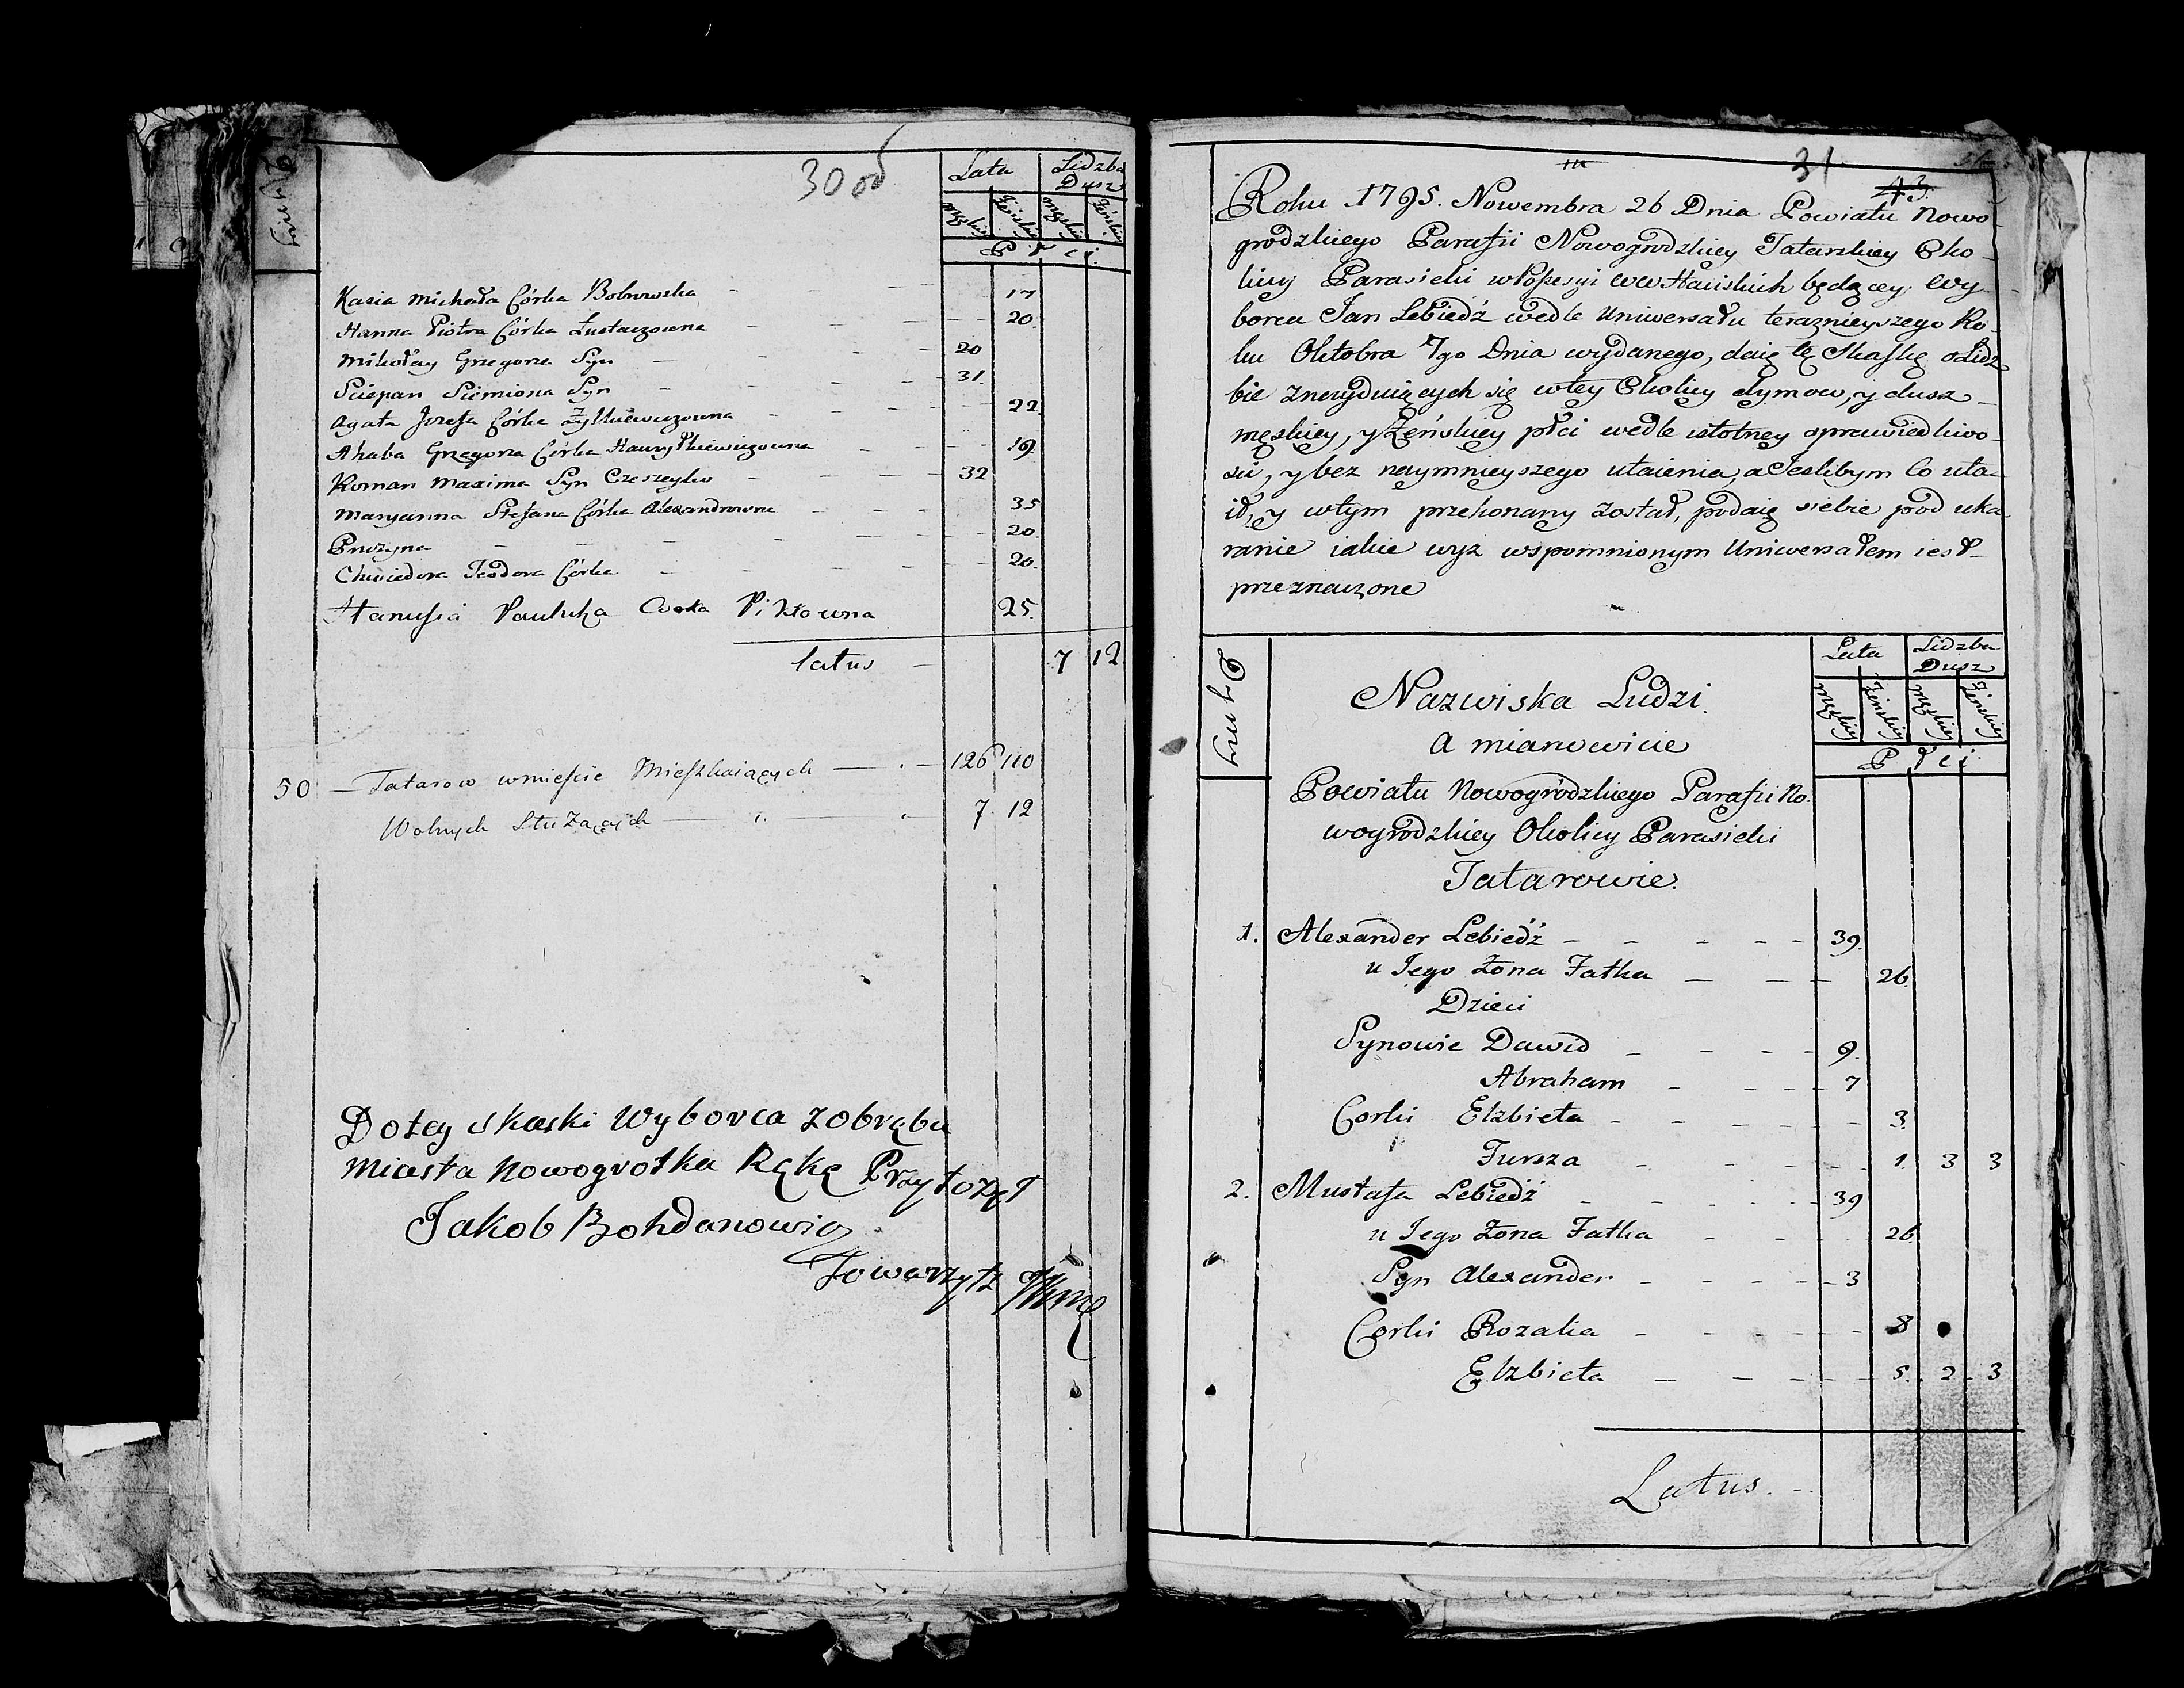 30 об
Liczba Dym
Lata Lidzba
Dusz
męzkiey Żeńskiey męzkiey Żeńskiey
Płci
Kasia Michała Córka Bobrowska 17
Hanna Piotra Córka Łustaczowna 20
Mikołay Grzegorza Syn 20
Sciepan Siemiona Syn 31.
Agata Jozefa Córka 22
Ahaba Grzegorza Córka 19.
Roman Maxima Syn Czeszeyko 32
Maryanna Stefana Córka Alexandrowna 35
Pruzyna 20.
Chwiedora Teodora Córka 20.
Hanusia Pauluka Corka 25.
latus 7 12.
50 Tatarow wmieście Mieszkaiących 126 110
Wolnych Służących 7 12
Dotey skaski Wyborca zobrębu
Miasta Nowogrotka Rękę Przytozył
Jakob Bohdanowicz
Towarzysz
31 43.
Roku 1795. Nowembra 26 Dnia Powiatu Nowo-
grodzkiego Parafii Nowogrodzkiey Tatarskiey Oko-
licy Parasieki w Possesyi będącey. Wy-
borca Jan Lebiedź wedle Uniwersału teraznieyszego Ro-
ku Oktobra 7go Dnia wydanego, daię tę Skaskę o Lidz-
bie znayduiących się wtey Okolicy dymow, y dusz
męskiey, y Żeńskiey płci wedle istotney sprawiedliwo-
sci, y bez naymnieyszego utaienia, a Jeslibym co uta-
ił, y wtym przekonany został, podaię siebie pod uka-
ranie iakie wyz wspomnionym Uniwersałem iest
przeznaczone
Liczba Dy Lata Lidzba
Dusz
męzkiey Żeńskiey męzkiey Żeńskiey
Płci
Nazwiska Ludzi.
a mianowicie
Powiatu Nowogródzkiego Parafii No-
wogrodzkiey Okolicy Parasieki
Tatarowie.
1. Alexander Lebiedź 39.
u Jego Żona Fatka 26.
Dzieci
Synowie Dawid 9.
Abraham 7
Corki Elzbieta 3.
Tursza 1. 3 3
2. Mustafa Lebiedź 39
u Jego Żona Fatka 26.
Syn Alexander 3
Corki Rozalia 8
Elzbieta 5. 2 3
Latus.